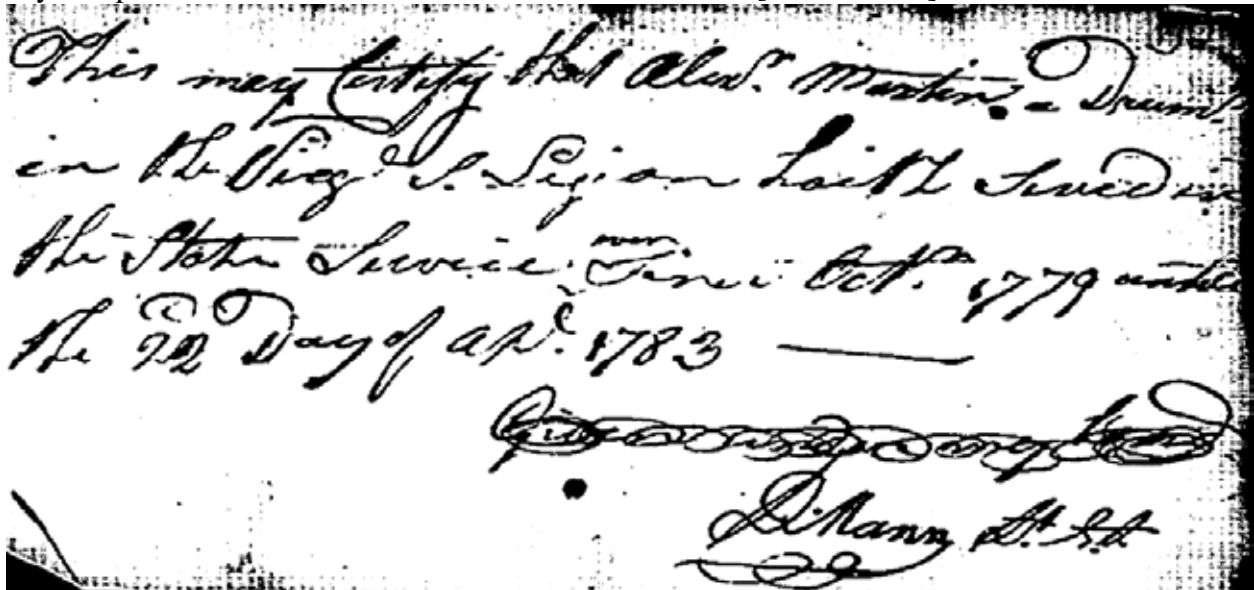 This may Certify that Alexr. Martin a Drumr
in the Virga S. Legion haith Served in
the State Service ever Since Octr. 1779 untill
the 22 Day of Apl. 1783
Given under my hand
Mann Lt.